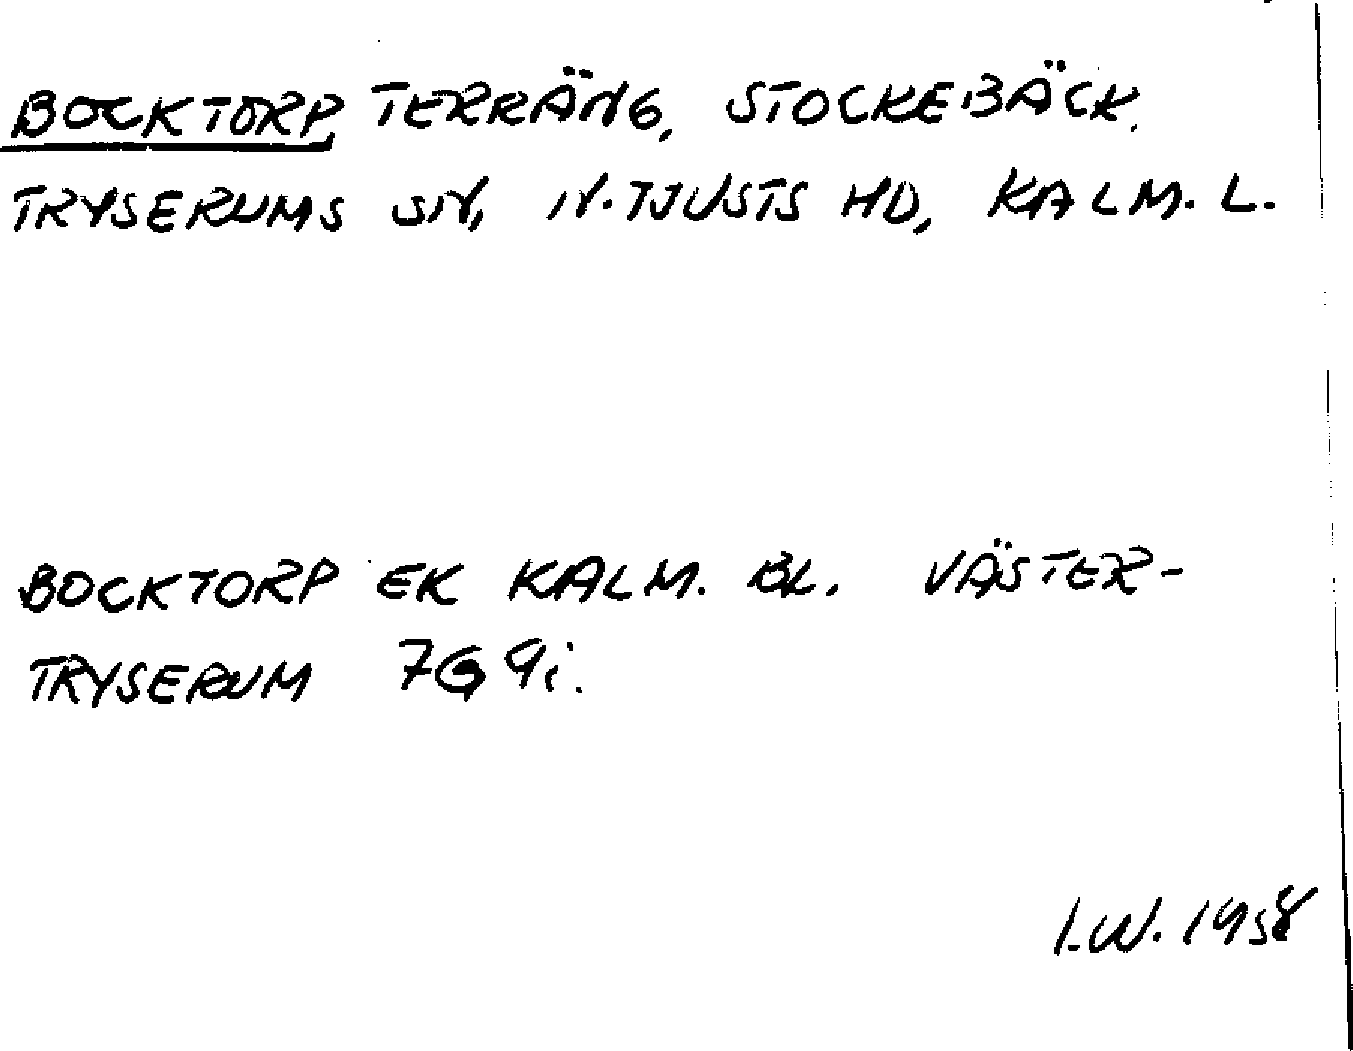 BOCKTORP, TERRÄNG, STOCKEBÄCK,
TRYSERUMS SN, N. TJUSTS HD, KALM. L.
BOCKTORP EK KALM. BL. VÄSTER-
TRYSERUM 7G 9i.
I.W. 1958